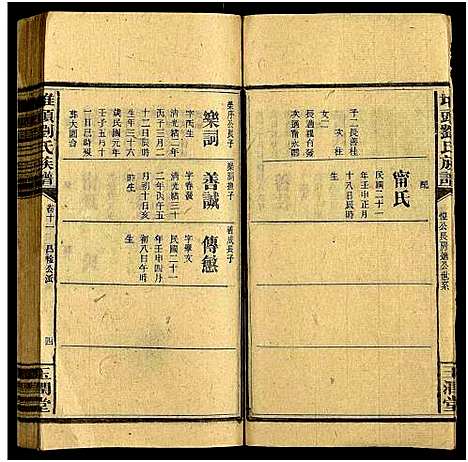 堆頭劉氏族譜
恒公長房遠公世系
玉潤堂
配
甯氏
民國二十一
年壬申正月
十八辰時
子二長善柱
次柱
女二
長適羅台善
次適甯永卿
樂序公長子
樂詞
字丙生
清光緒二年
丙子三月二
十二日辰時
生年三十六
歿民國元年
壬子五月十
一日巳時歿
葬大劉沖
樂詞撫子
善誠
字春發
清光緒三十
年甲辰十二
月初十日亥
時生
善成長子
傳憋
字學友
民國二十一
年壬申四月
初八日午時
生
堆頭劉氏族譜
卷十一
昌檢公派
四
玉潤堂